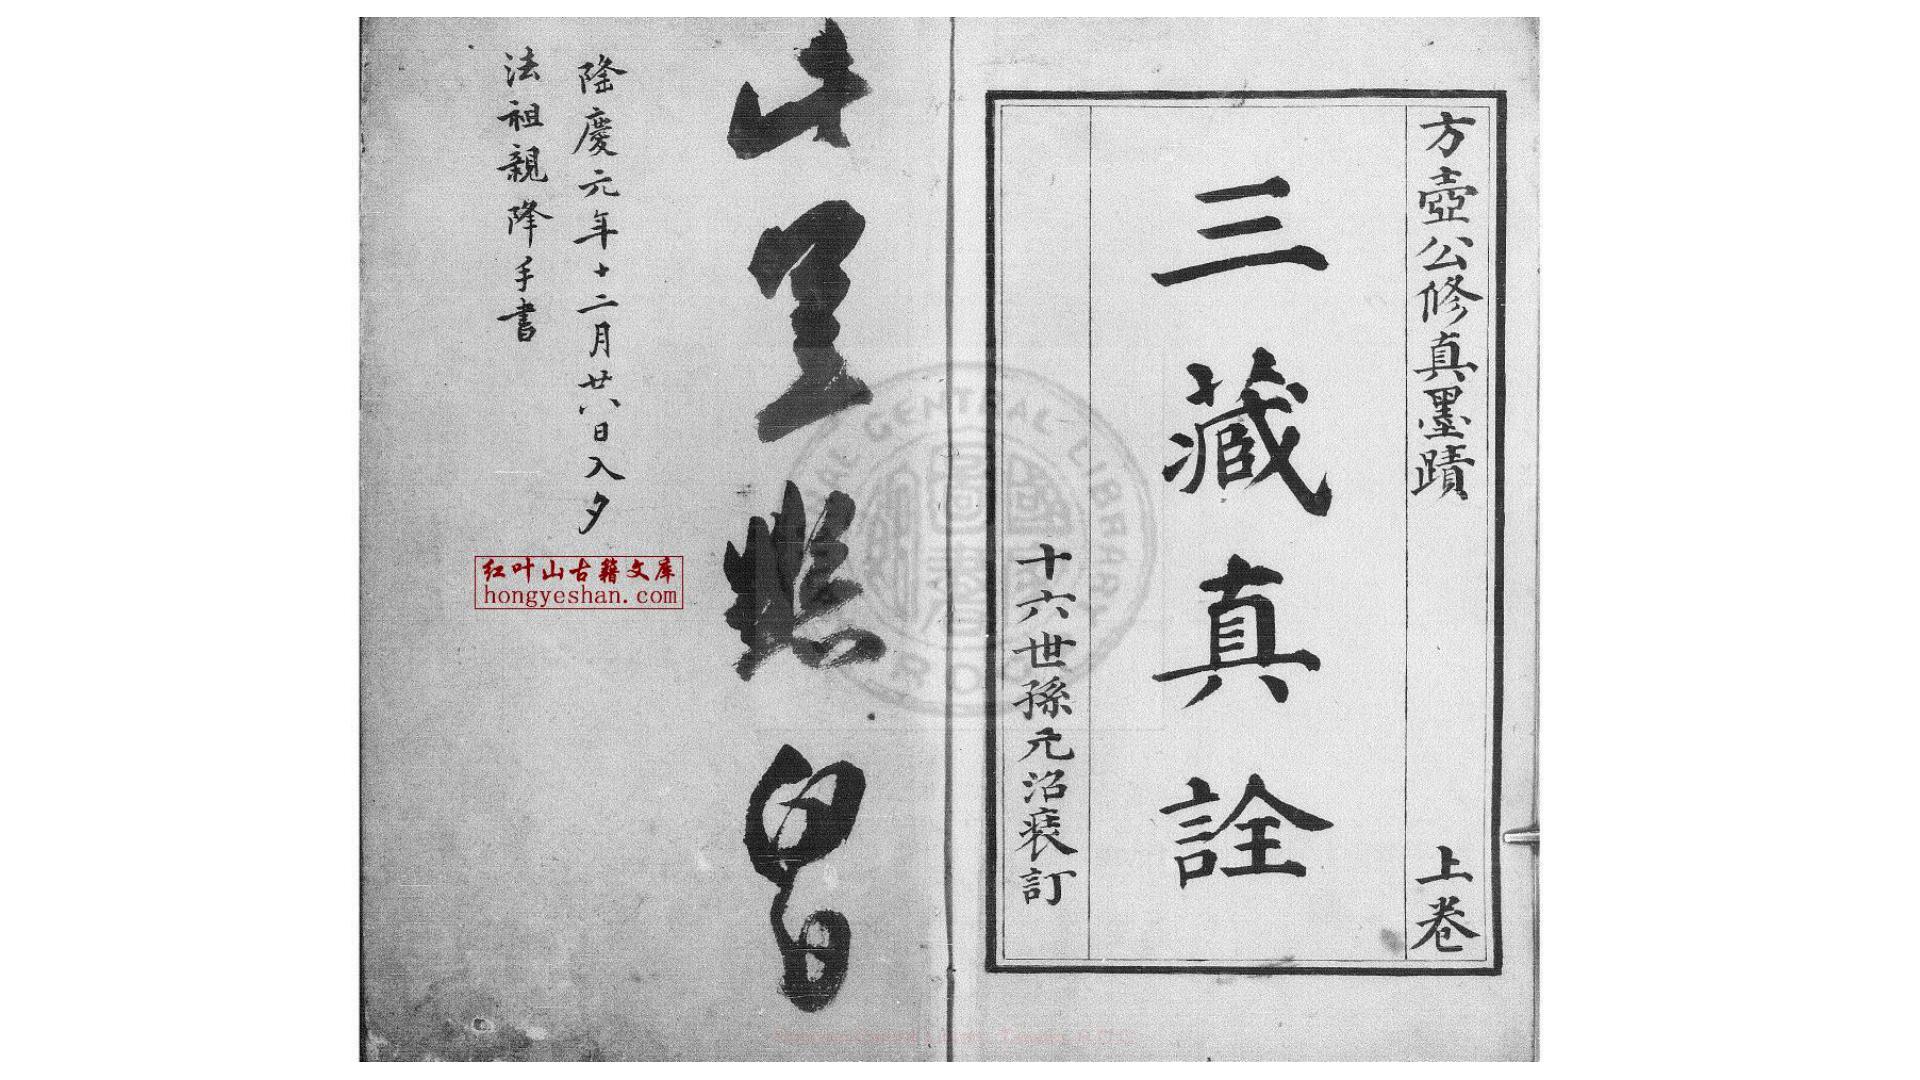 方壺公修真墨蹟 上卷
三藏真詮
十六世孫元沼裝訂
隆慶元年十二月廿八日入夕
法祖親降手書
红叶山古籍文库
hongyeshan.com
CENTRAL LIBRARY